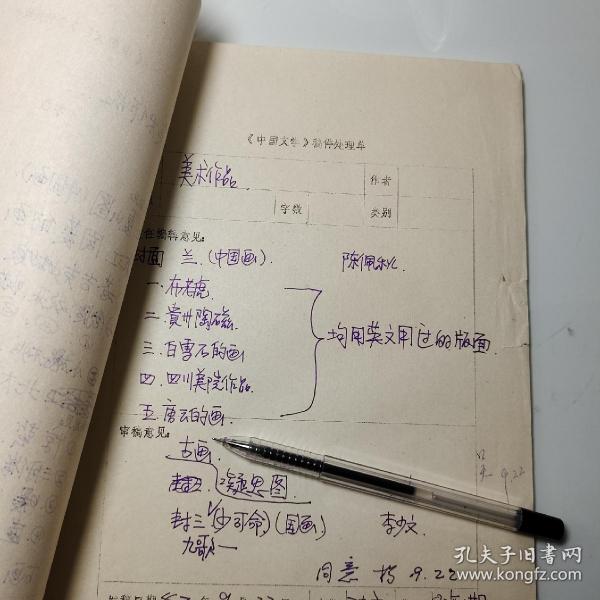 《中国文学》稿件处理单
美术作品
作者
字数
类别
任编辑意见:
封面 兰.(中国画).
陈佩秋
一.布老虎
二.贵州陶磁
三.白雪石的画
四.四川美院作品
五.唐云的画
均用英文用过的版面
审稿意见:
古画
封二.凝思图
封三(少司命)(国画)
李少文
九歌一
9.22
同意 9.22
孔夫子旧书网
www.kongfz.com